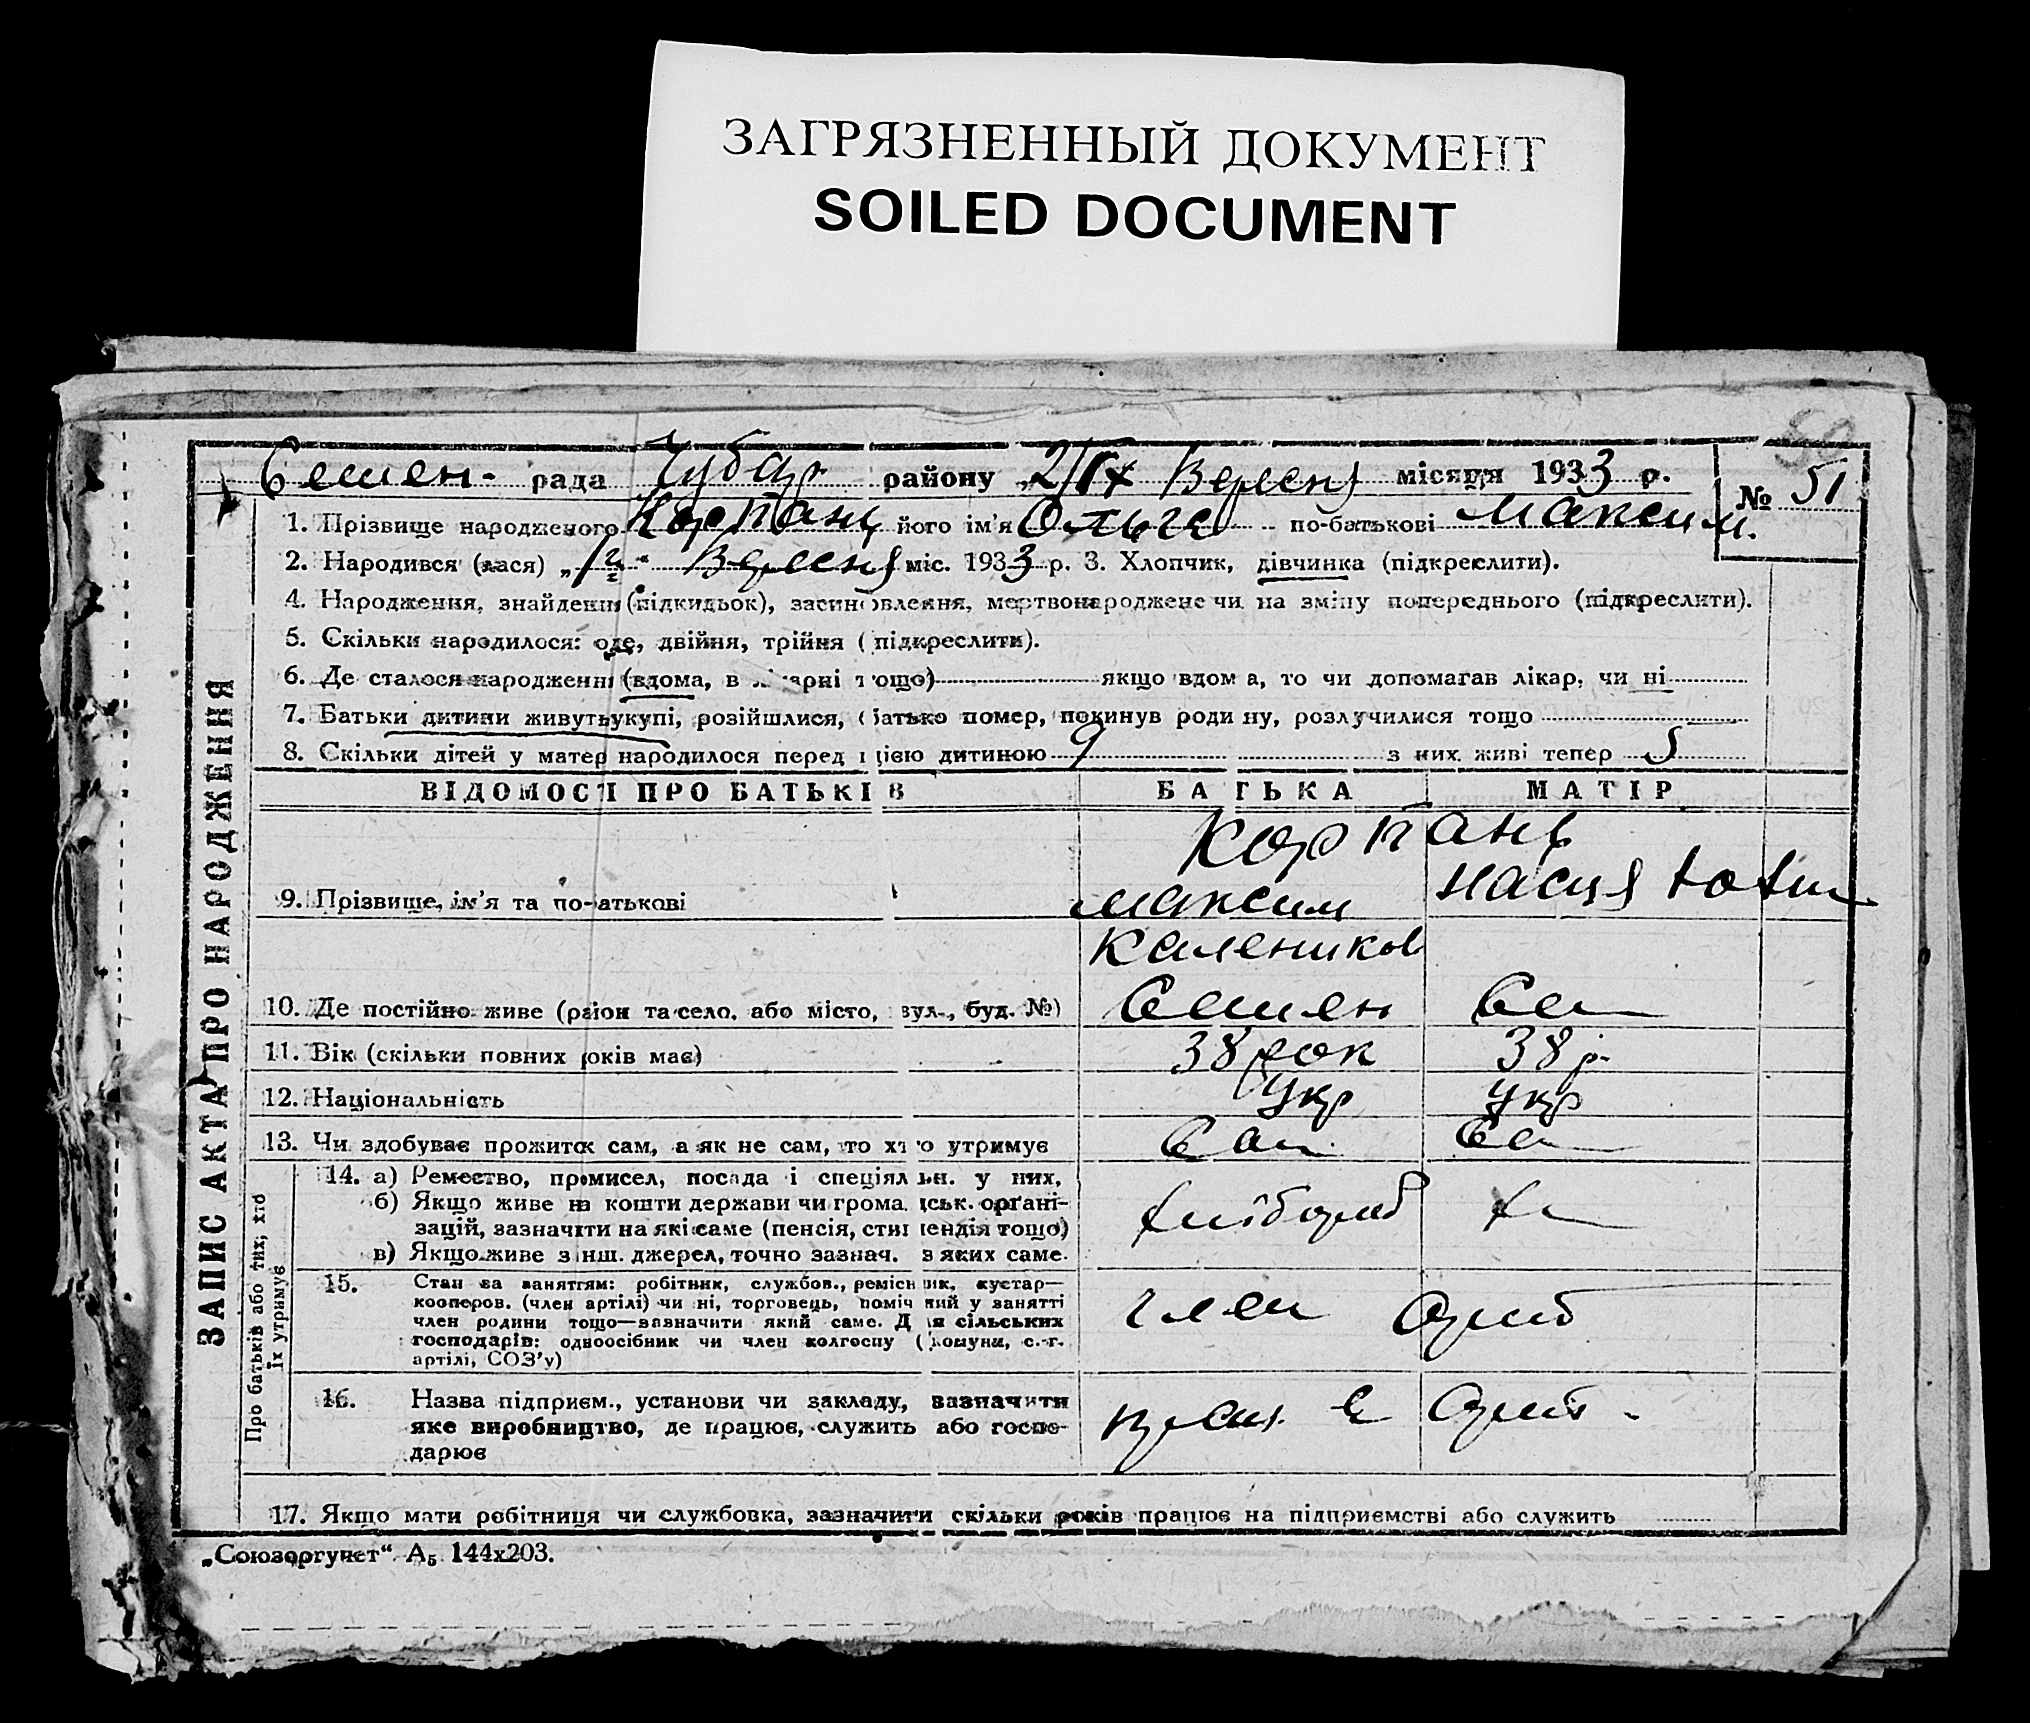 ЗАГРЯЗНЕННЫЙ ДОКУМЕНТ
SOILED DOCUMENT
Семен- рада Чубар району „2/IX Вересня місяця 1933 р.
№ 51
1. Прізвище народженого Карпань його ім'я Ольга по-батькові Максим.
2. Народився (лася) Вересня міс. 1933 р. 3. Хлопчик, дівчинка (підкреслити).
4. Народження, знайдення (підкидьок), засиновлення, мертвонароджене чи на зміну попереднього (підкреслити).
5. Скільки народилося: одне, двійня, трійня (підкреслити).
6. Де сталося народження (вдома, в лікарні тощо) якщо вдома, то чи допомагав лікар, чи ні
7. Батьки дитини живуть укупі, розійшлися, батько помер, покинув родину, розлучилися тощо
8. Скільки дітей у матері народилося перед цією дитиною 9 з них живі тепер 5
ВІДОМОСТІ ПРО БАТЬКІВ БАТЬКА МАТІР
Карпань
9. Прізвище, ім'я та по-батькові Максим Настя
Калеников
10. Де постійно живе (район та село, або місто, вул., буд. №) Семен
11. Вік (скільки повних років має) 38 рок 38 р.
12. Національність Укр Укр
13. Чи здобуває прожиток сам, а як не сам, то хто утримує Сам
Про батьків або тих, хто їх утримує
14. а) Ремество, промисел, посада і спеціяльн. у них,
б) Якщо живе на кошти держави чи громадськ. органі-
зацій, зазначити на які саме (пенсія, стипендія тощо) хлібороб
в) Якщо живе з інш. джерел, точно зазнач. з яких саме.
15. Стан за заняттям: робітник, службов., ремісник, кустар—
кооперов. (член артілі) чи ні, торговець, помічний у занятті
член родини тощо—зазначити який саме. Для сільських
господарів: одноосібник чи член колгоспу (комуни, с.-г.
артілі, СОЗ'у) член
16. Назва підприєм., установи чи закладу, зазначити
яке виробництво, де працює, служить або госпо-
дарює
17. Якщо мати робітниця чи службовка, зазначити скільки років працює на підприємстві або служить
ЗАПИС АКТА ПРО НАРОДЖЕННЯ
„Союзоргучет“ А₅ 144х203.